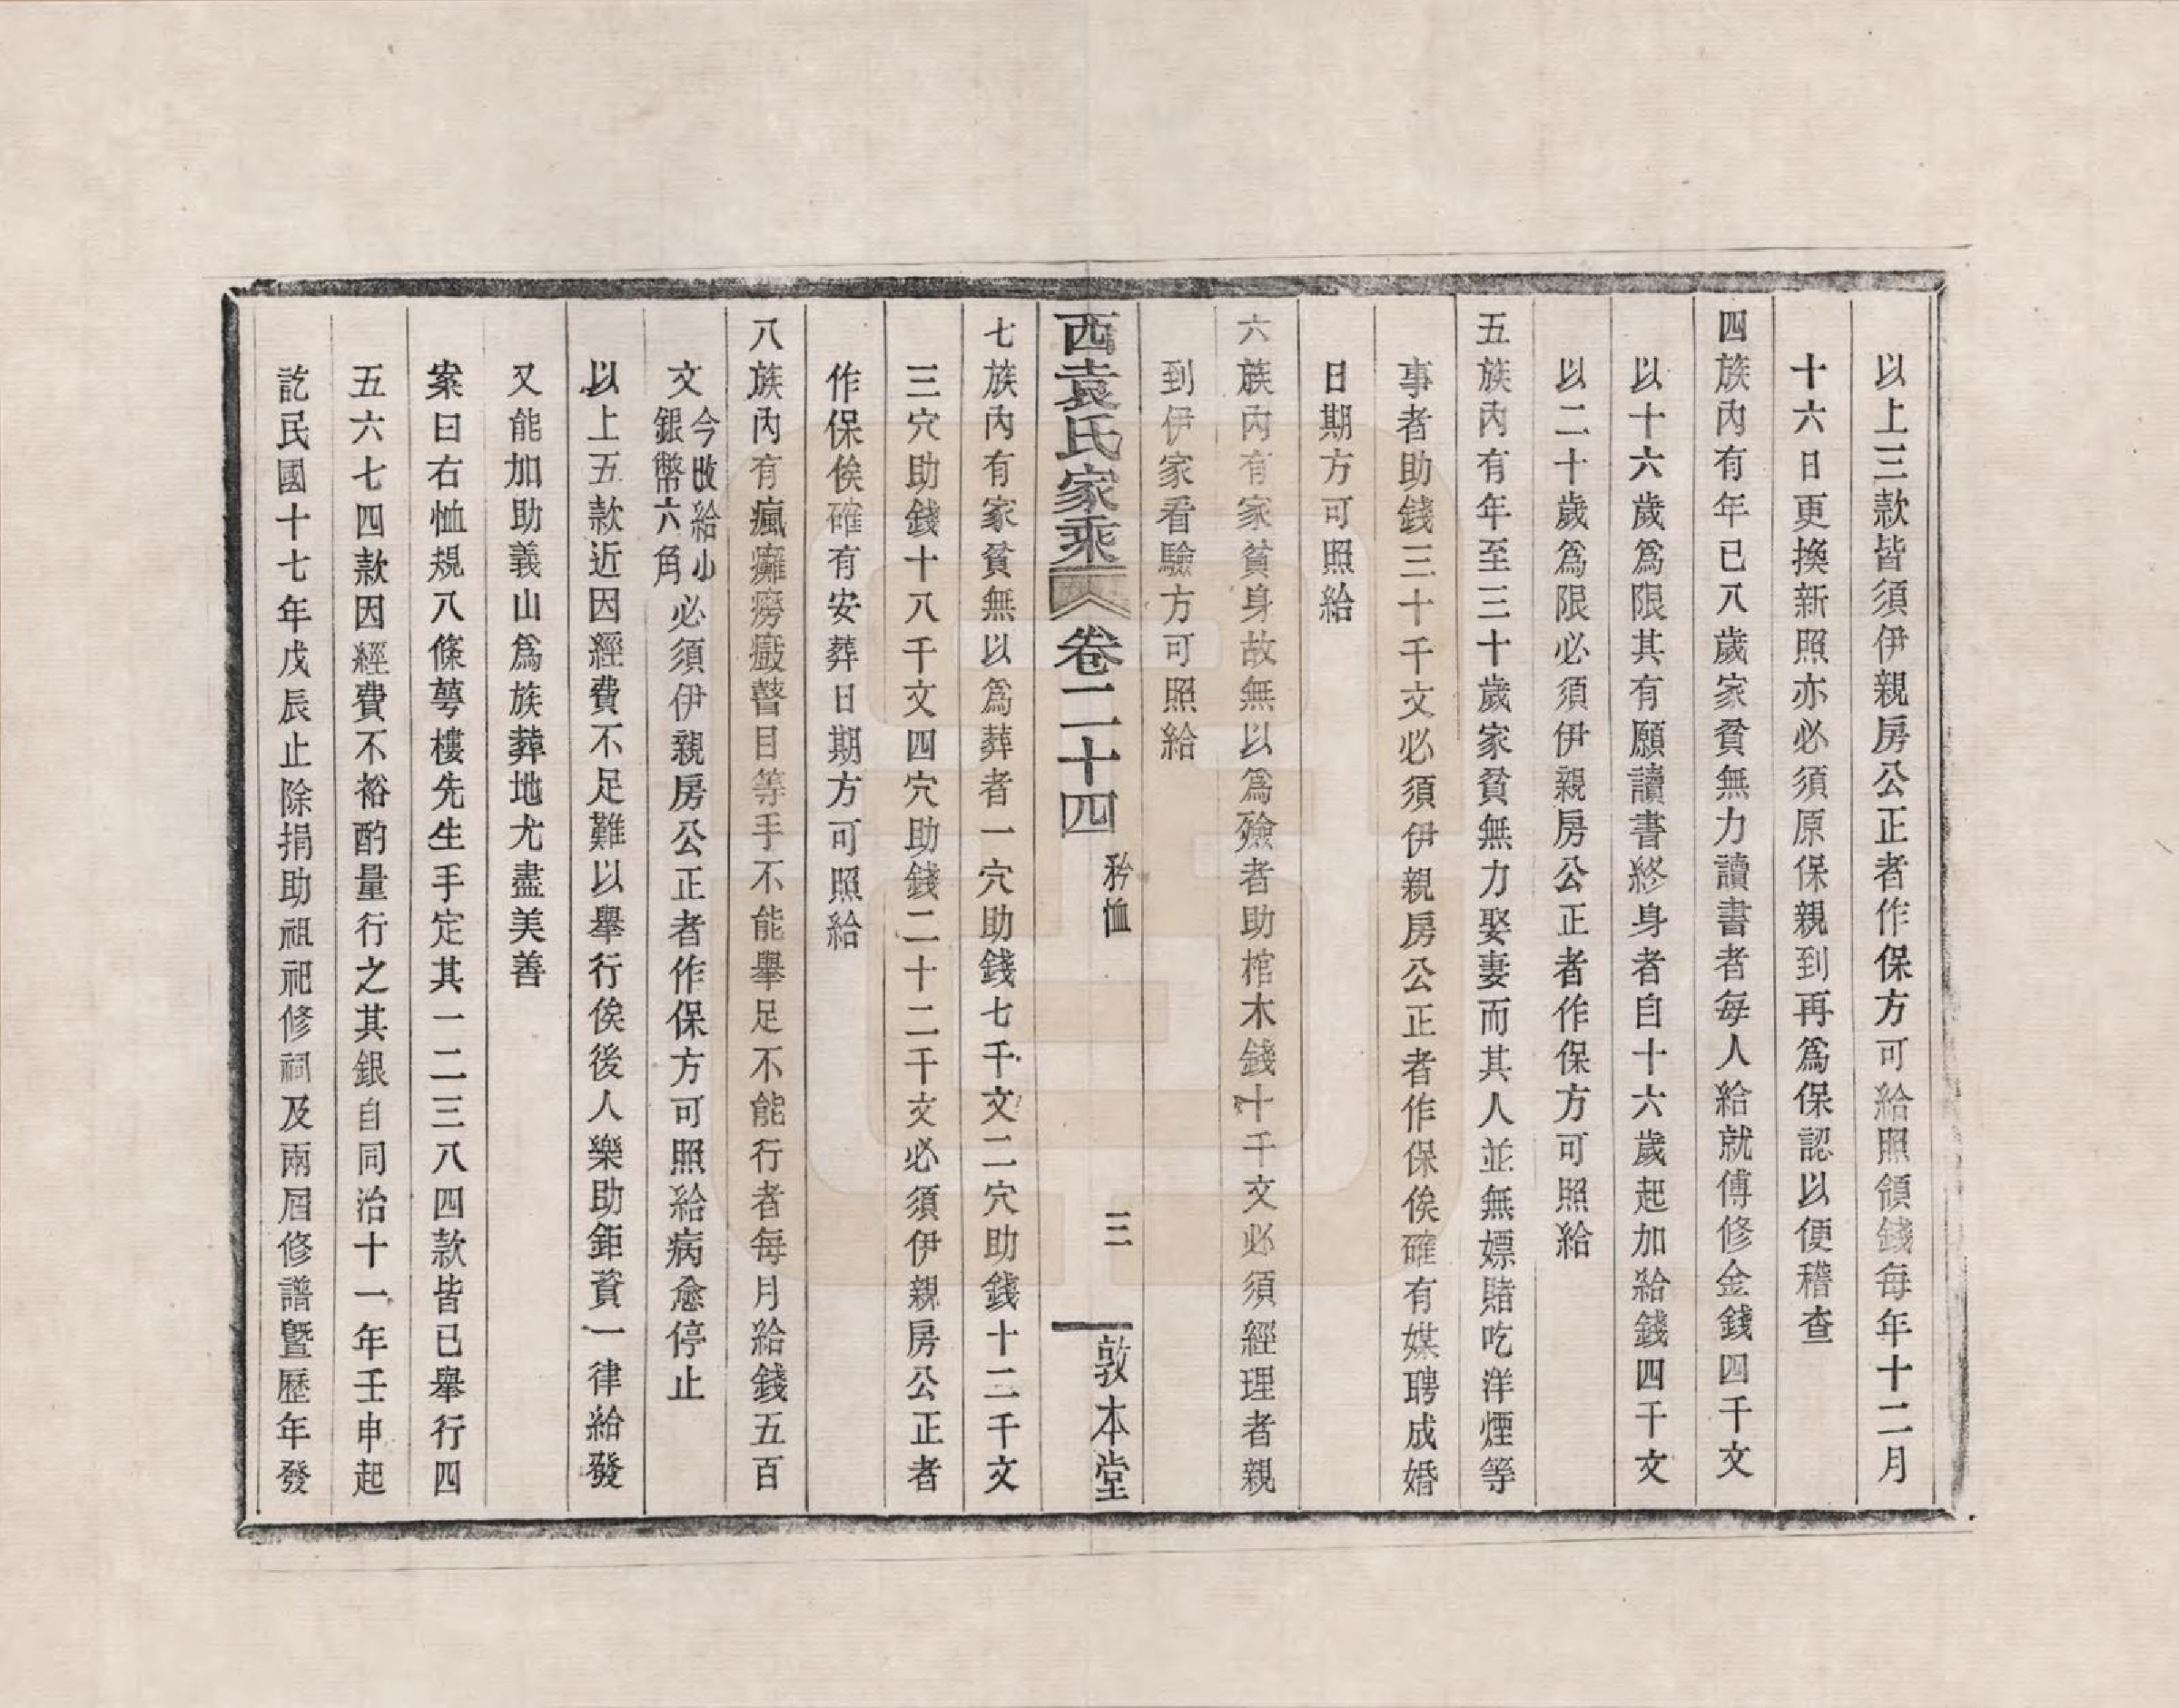 以上三款皆須伊親房公正者作保方可給照領錢每年十二月
十六日更換新照亦必須原保親到再爲保認以便稽查
四族內有年已八歲家貧無力讀書者每人給就傅修金錢四千文
以十六歲爲限其有願讀書終身者自十六歲起加給錢四千文
以二十歲爲限必須伊親房公正者作保方可照給
五族內有年至三十歲家貧無力娶妻而其人並無嫖賭吃洋煙等
事者助錢三十千文必須伊親房公正者作保俟確有媒聘成婚
日期方可照給
六族內有家貧身故無以爲殮者助棺木錢十千文必須經理者親
到伊家看驗方可照給
西袁氏家乘 卷二十四 矜恤 三 敦本堂
七族內有家貧無以爲葬者一穴助錢七千文二穴助錢十二千文
三穴助錢十八千文四穴助錢二十二千文必須伊親房公正者
作保俟確有安葬日期方可照給
八族內有瘋癱癆癡瞽目等手不能舉足不能行者每月給錢五百
文今改給小銀幣六角必須伊親房公正者作保方可照給病愈停止
以上五款近因經費不足難以舉行俟後人樂助鉅資一律給發
又能加助義山爲族葬地尤盡美善
案曰右恤規八條蕚樓先生手定其一二三八四款皆已舉行四
五六七四款因經費不裕酌量行之其銀自同治十一年壬申起
訖民國十七年戊辰止除捐助祖祀修祠及兩屆修譜暨歷年發